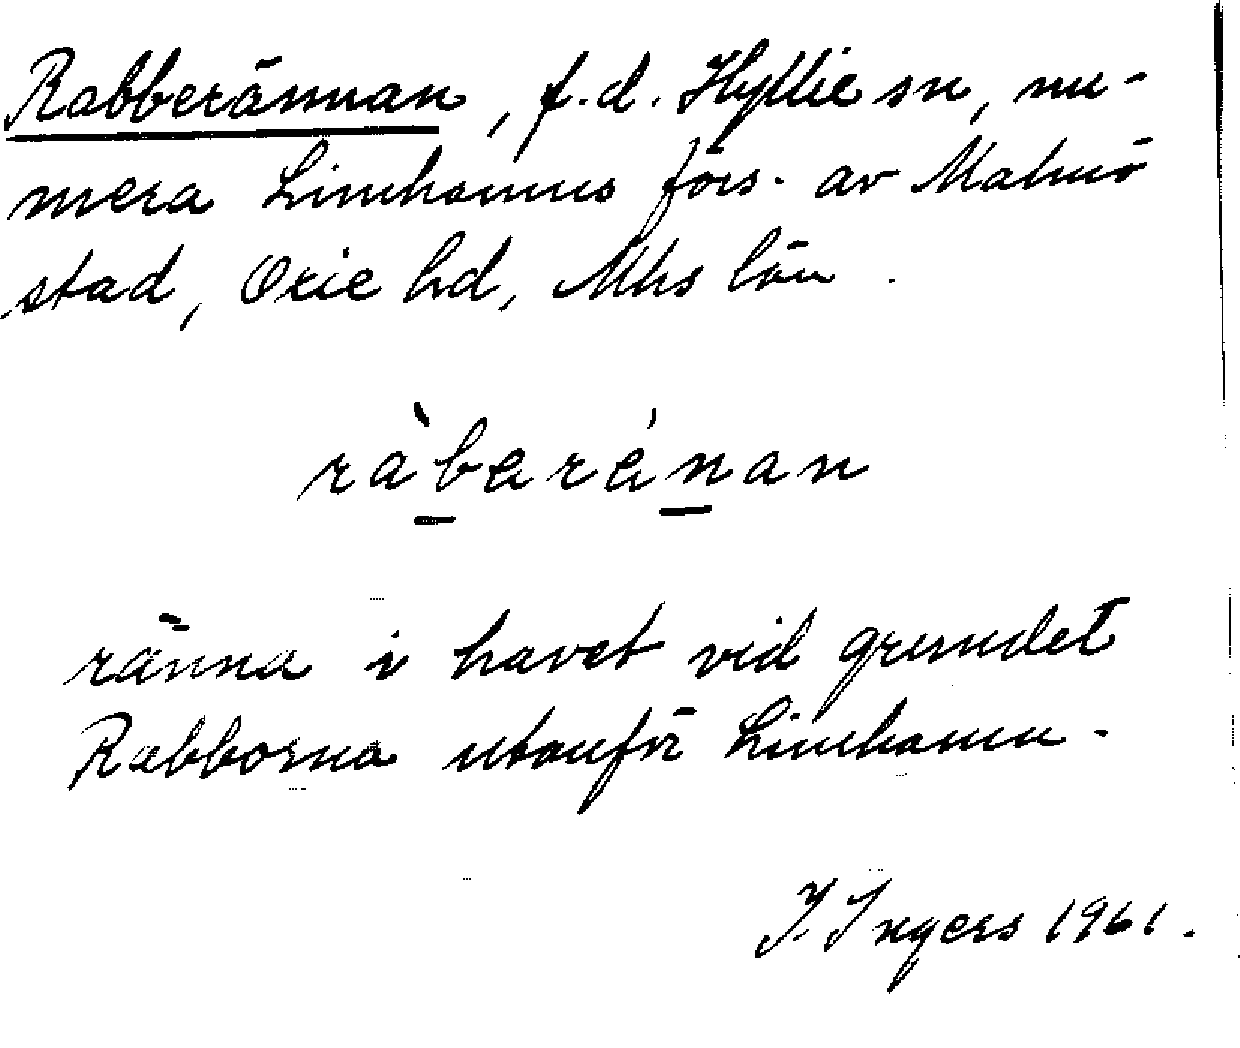 Rabberännan, f.d. Hyllie sn, nu-
mera Limhamns förs. av Malmö
stad, Oxie hd, Mhs län.
ràbaránan
ränna i havet vid grundet
Rabborna utanför Limhamn.
I. Ingers 1961.